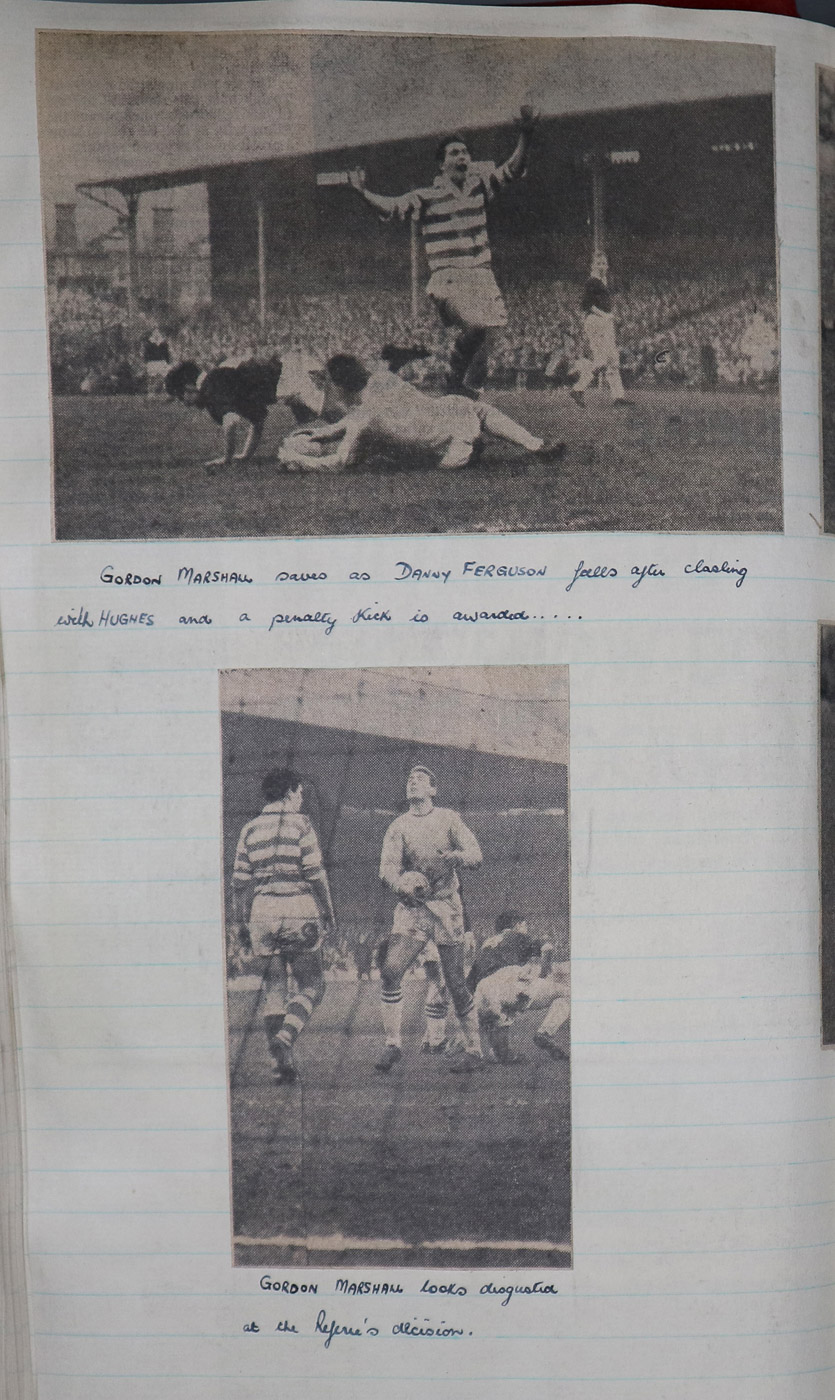 GORDON MARSHALL saves as DANNY FERGUSON falls after clashing
with HUGHES and a penalty kick is awarded.....
GORDON MARSHALL looks disgusted
at the Referee's decision.